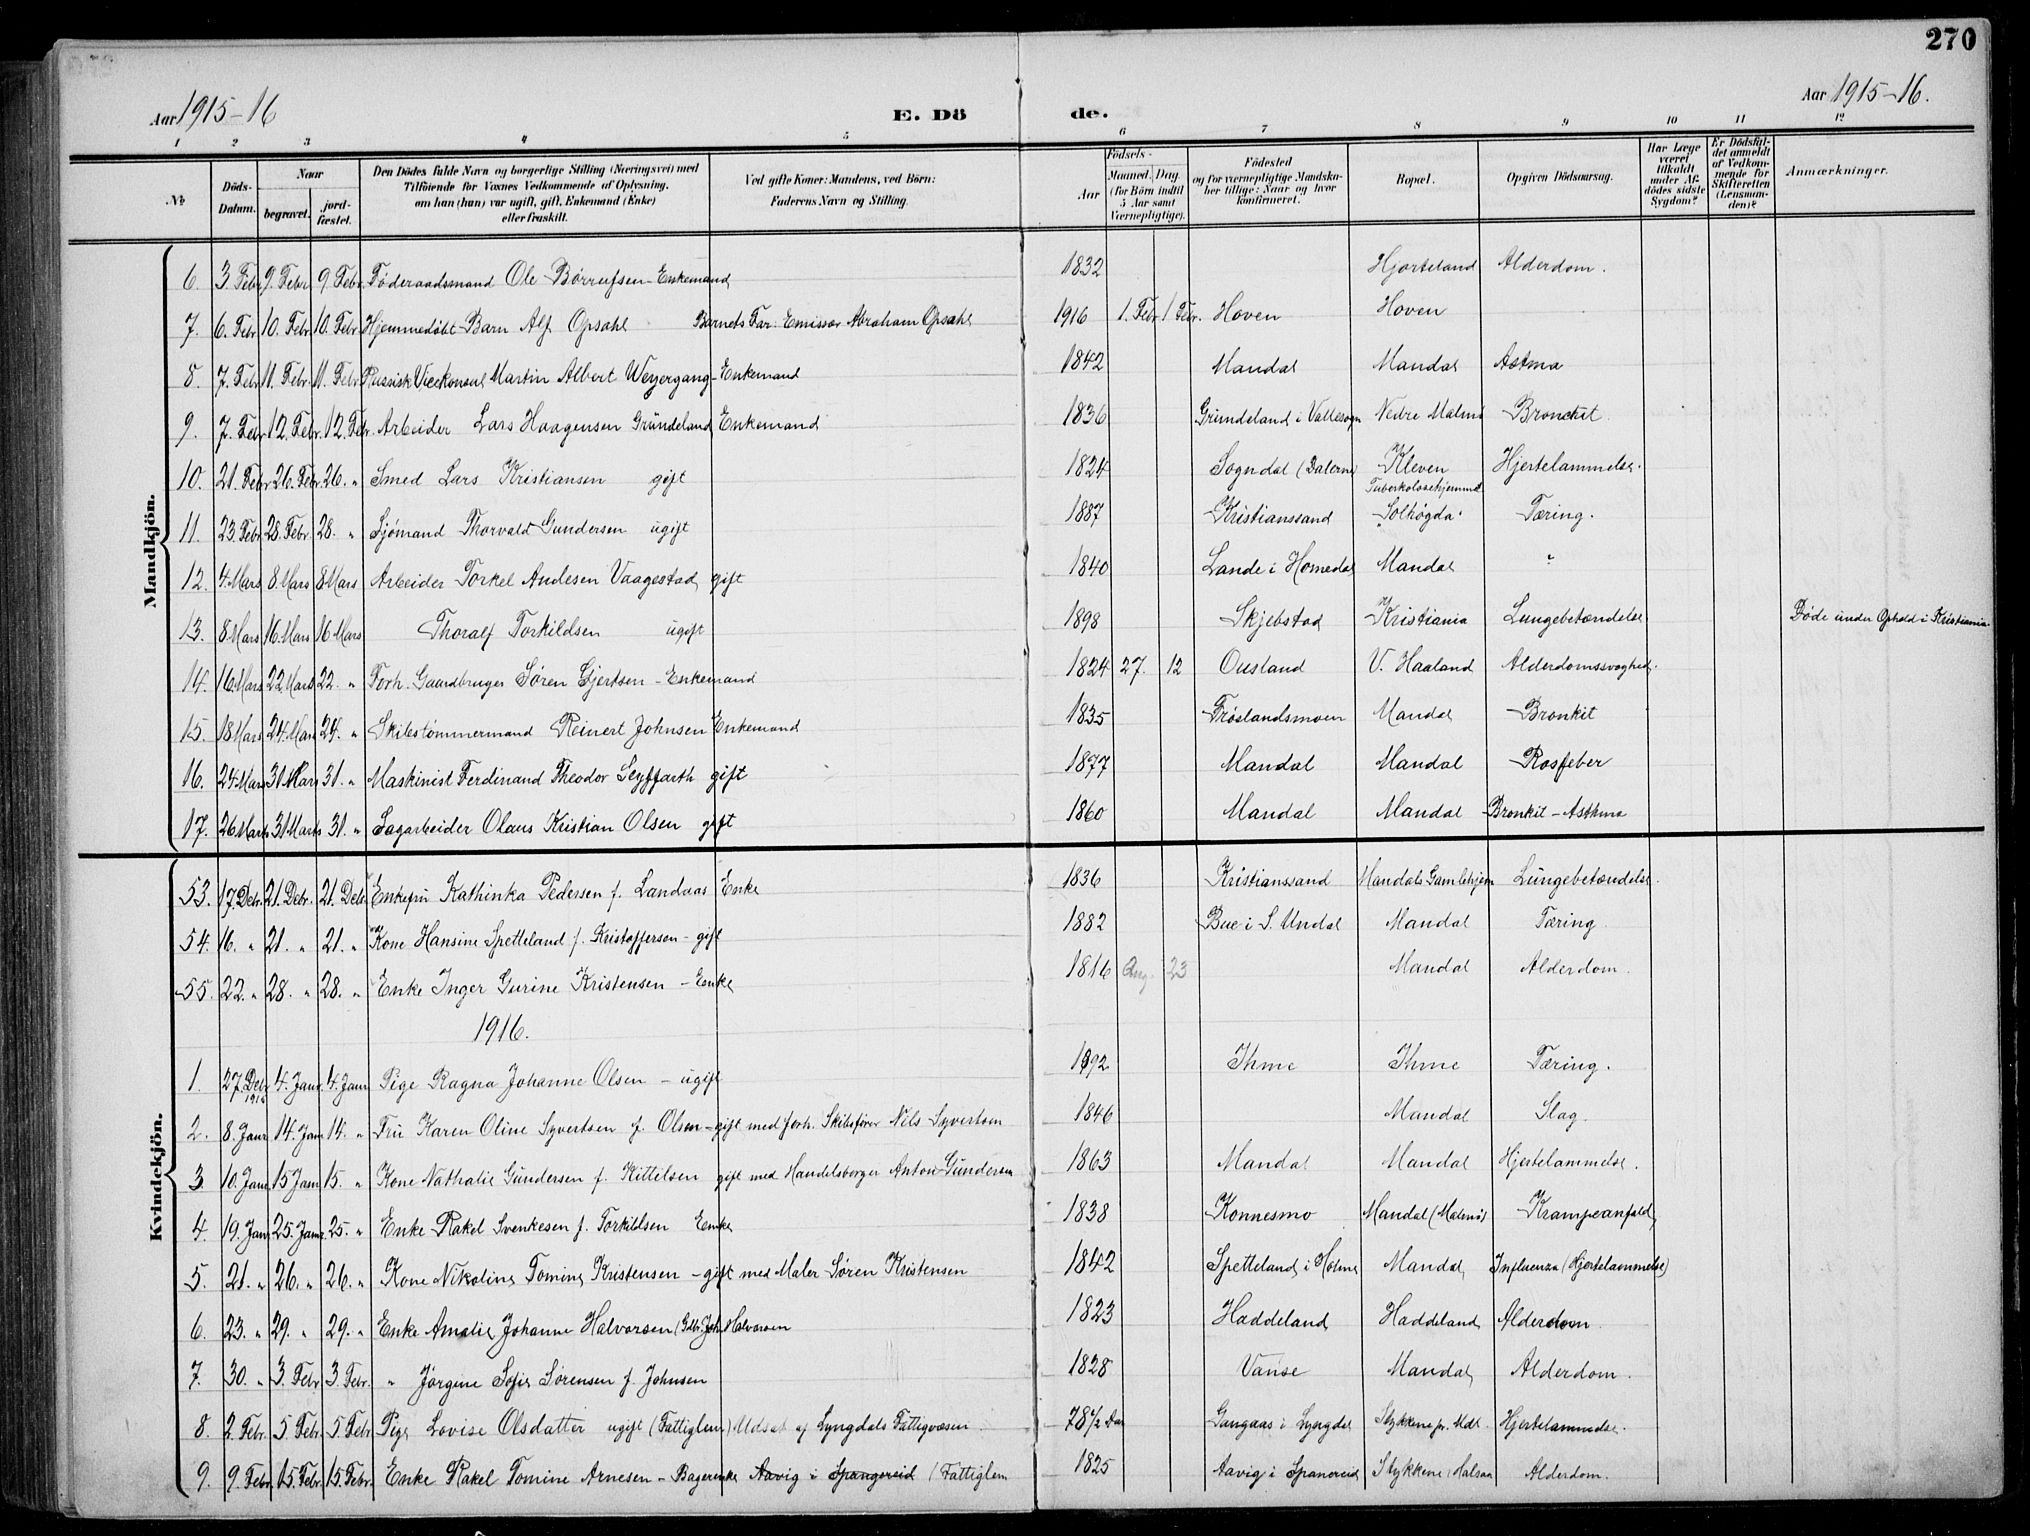 270
Aar 1915-16
E. Dö
de.
Aar 1915-16.
1 2 3 4 5 6 7 8 9 10 11 12
№
Döds-Datum.
Naar
begravet.
jord-fæstet.
Den Dödes fulde Navn og borgerlige Stilling (Næringsvei) med
Tilföiende for Voxnes Vedkommende af Oplysning,
om han (hun) var ugift, gift, Enkemand (Enke)
eller fraskilt.
Ved gifte Koner: Mandens, ved Börn:
Faderens Navn og Stilling.
Födsels-
Aar
Maaned. Dag.
(for Börn indtil
5 Aar samt
Værnepligtige).
Födested
og for værnepligtige Mandska-
ber tillige: Naar og hvor
konfirmeret.
Bopæl.
Opgiven Dödsaarsag.
Har Læge
været
tilkaldt
under Af-
dödes sidste
Sygdom?
Er Dödsfal-
det anmeldt
af Vedkom-
mende for
Skifteretten
(Lensman-
den)?
Anmærkninger.
Mandkjön.
6. 3 Febr 9. Febr 9. Febr Føderaadsmand Ole Børrufsen - Enkemand 1832 Hjorteland Alderdom.
7. 6. Febr 10. Febr 10. Febr Hjemmedøbt Barn Alf Opsahl Barnets Far: Emissær Abraham Opsahl 1916 1. Febr 1 Febr. Hoven Hoven
8. 7. Febr 11. Febr. 11. Febr Russisk Vicekonsul Martin Albert Weyergang - Enkemand 1842 Mandal Mandal Astma
9. 7. Febr 12. Febr. 12. Feb. Arbeider Lars Haagensen Gründeland Enkemand 1836 Gründeland i Vallesogn Nedre Malmø Bronchit.
10. 21. Febr 26. Febr 26. " Smed Lars Kristiansen gift 1824 Sogndal (Dalerne) Kleven Hjertelammelse.
11. 23. Febr 28. Febr 28. " Sjømand Thorvald Gundersen ugift 1887 Kristianssand Tuberkolosehjemmet "Solhøgda" Tæring.
12. 4. Mars 8. Mars 8 Mars Arbeider Torkel Andesen Vaagestad gift 1840 Lande i Homedal Mandal "
13. 8. Mars 16. Mars 16 Mars Thoralf Torkildsen ugift 1898 Skjebstad Kristiania Lungebetændelse Døde under Ophold i Kristiania
14. 16. Mars 22 Mars 22. " Forh. Gaardbruger Søren Gjertsen - Enkemand 1824 27. 12 Ousland V. Haaland Alderdomssvaghed.
15. 18 Mars 24. Mars 24. " Skibstømmermand Reinert Johnsen Enkemand 1835 Frøslandsmoen Mandal Bronkit
16. 24. Mars 31. Mars 31. " Maskinist Ferdinand Theodor Seyffarth gift 1877 Mandal Mandal Rosfeber
17. 26 Marts 31 Marts 31. " Sagarbeider Olaus Kristian Olsen gift 1860 Mandal Mandal Bronkit - Asthma
Kvindekjön.
53. 17. Debr. 21. Debr. 21. Debr. Enkefru Kathinka Pedersen f. Landaas Enke 1836 Kristianssand Mandals Gamlehjem Lungebetændelse.
54. 16. " 21. " 21. " Kone Hansine Spetteland f. Kristoffersen - gift 1882 Bue i S. Undal Mandal Tæring
55. 22. " 28. " 28. " Enke Inger Gurine Kristensen - Enke 1816 Aug. 23 Mandal Alderdom.
1916.
1. 27. Debr 1915 4. Janr. 4. Janr Pige Ragna Johanne Olsen - ugift 1892 Ihme Ihme Tæring.
2. 8. Janr 14. Janr 14. " Fru Karen Oline Syvertsen f. Olsen - gift med forh. Skibsfører Nils Syvertsen 1846 Mandal Slag.
3 10. Janr 15 Janr 15. " Kone Nathalie Gundersen f. Kittelsen gift med Handelsborger Anton Gundersen 1863 Mandal Mandal Hjertelammelse.
4. 19. Janr 25. Janr. 25. " Enke Rakel Svenkesen f. Torkildsen Enke 1838 Konnesmo Mandal (Malmø) Krampeanfald
5. 21. " 26. " 26. " Kone Nikoline Tomine Kristensen - gift med Maler Søren Kristensen 1842 Spetteland i Holme Mandal Influenza (Hjertelammelse)
6. 23. " 29. " 29. " Enke Amalie Johanne Halvorsen (Gdbr. Joh. Halvorsen 1823 Haddeland Haddeland Alderdom.
7. 30. " 3. Febr 3. Febr. " Jørgine Sofie Sørensen f. Johnsen 1828 Vanse Mandal Alderdom.
8. 2. Febr. 5 Febr. 5. Febr. Pige Lovise Olsdatter ugift (Fattiglem) Udsat af Lyngdals Fattigvæsen 78½ Aar Gangaas i Lyngdal Stykkene pr. Mdl. Hjertelammelse.
9. 9. Febr. 15. Febr 15. Febr. Enke Rakel Tomine Arnesen - Bagerenke Aavig i Spangereid (Fattiglem 1825 Aavig i Spangereid Stykkene i Halsaa Alderdom.